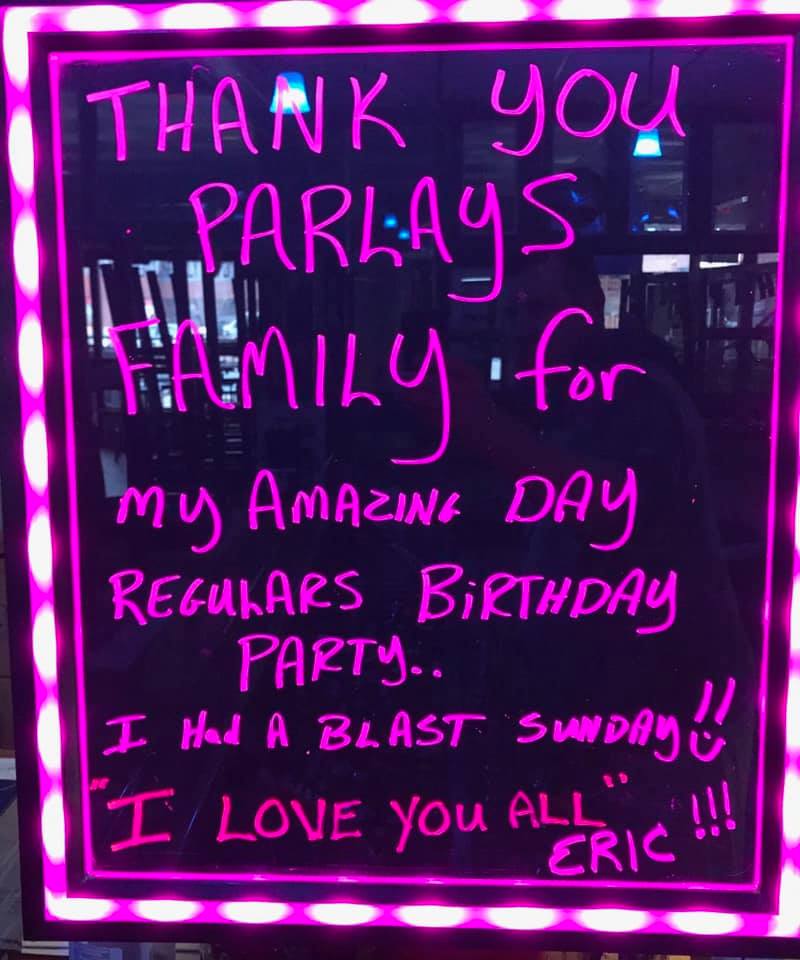 THANK YOU
PARLAYS
FAMILY for
MY AMAZING DAY
REGULARS BiRTHDAY
PARTY..
I Had A BLAST SUNDAY!!
"I LOVE YOU ALL" !!!
ERIC